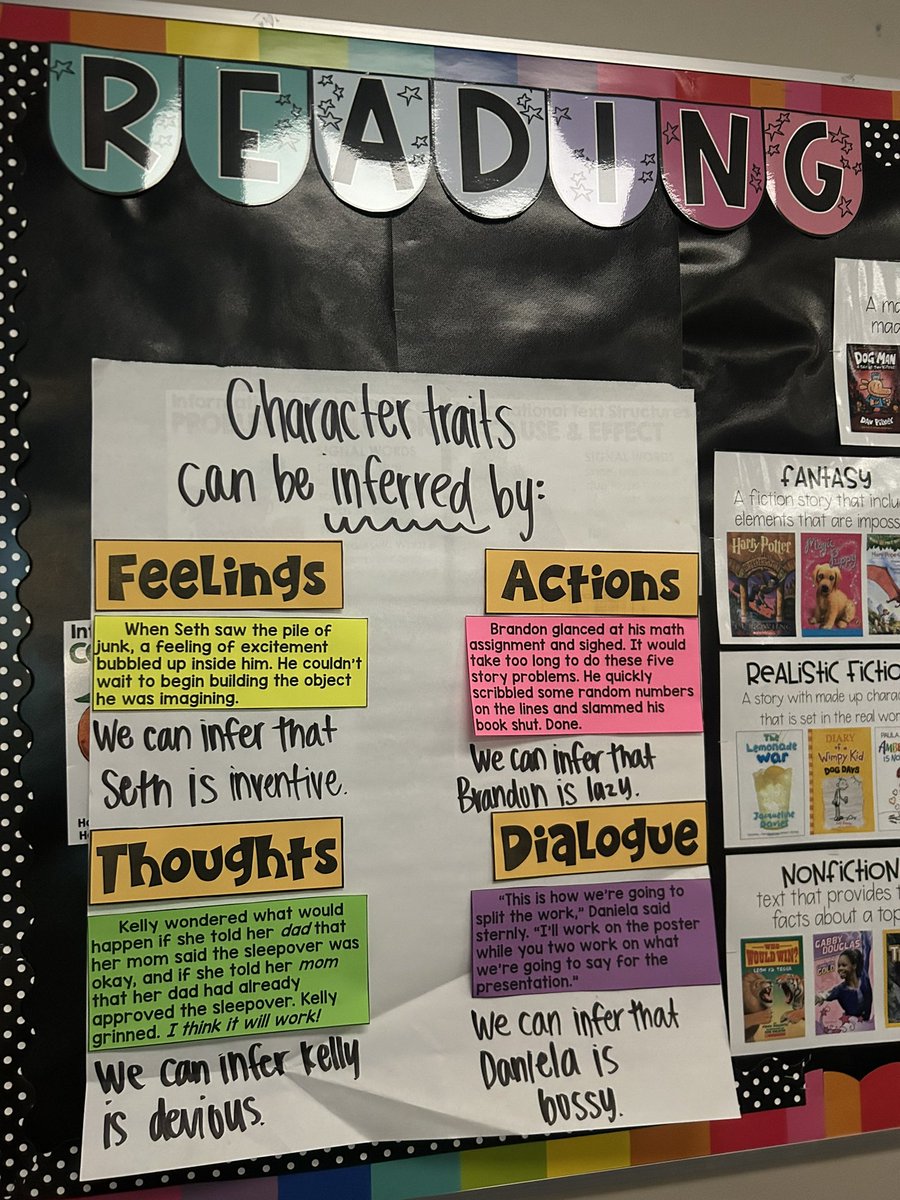 READING
Character traits
can be inferred by:
Feelings
When Seth saw the pile of
junk, a feeling of excitement
bubbled up inside him. He couldn't
wait to begin building the object
he was imagining.
We can infer that
Seth is inventive.
Actions
Brandon glanced at his math
assignment and sighed. It would
take too long to do these five
story problems. He quickly
scribbled some random numbers
on the lines and slammed his
book shut. Done.
We can infer that
Brandon is lazy.
Thoughts
Kelly wondered what would
happen if she told her dad that
her mom said the sleepover was
okay, and if she told her mom
that her dad had already
approved the sleepover. Kelly
grinned. I think it will work!
We can infer Kelly
is devious.
Dialogue
"This is how we're going to
split the work," Daniela said
sternly. "I'll work on the poster
while you two work on what
we're going to say for the
presentation."
We can infer that
Daniela is
bossy.
A
DOG MAN
DAV PILKEY
FANTASY
A fiction story that
elements that are
Harry Potter
Magic
Puppy
REALISTIC
A story with made up
that is set in the real
The
Lemonade
War
Jacqueline
Davies
DIARY
of a
Wimpy Kid
DOG DAYS
NONFICTION
text that provides
facts about a
WHO
WOULD WIN?
LION VS. TIGER
GABBY
DOUGLAS